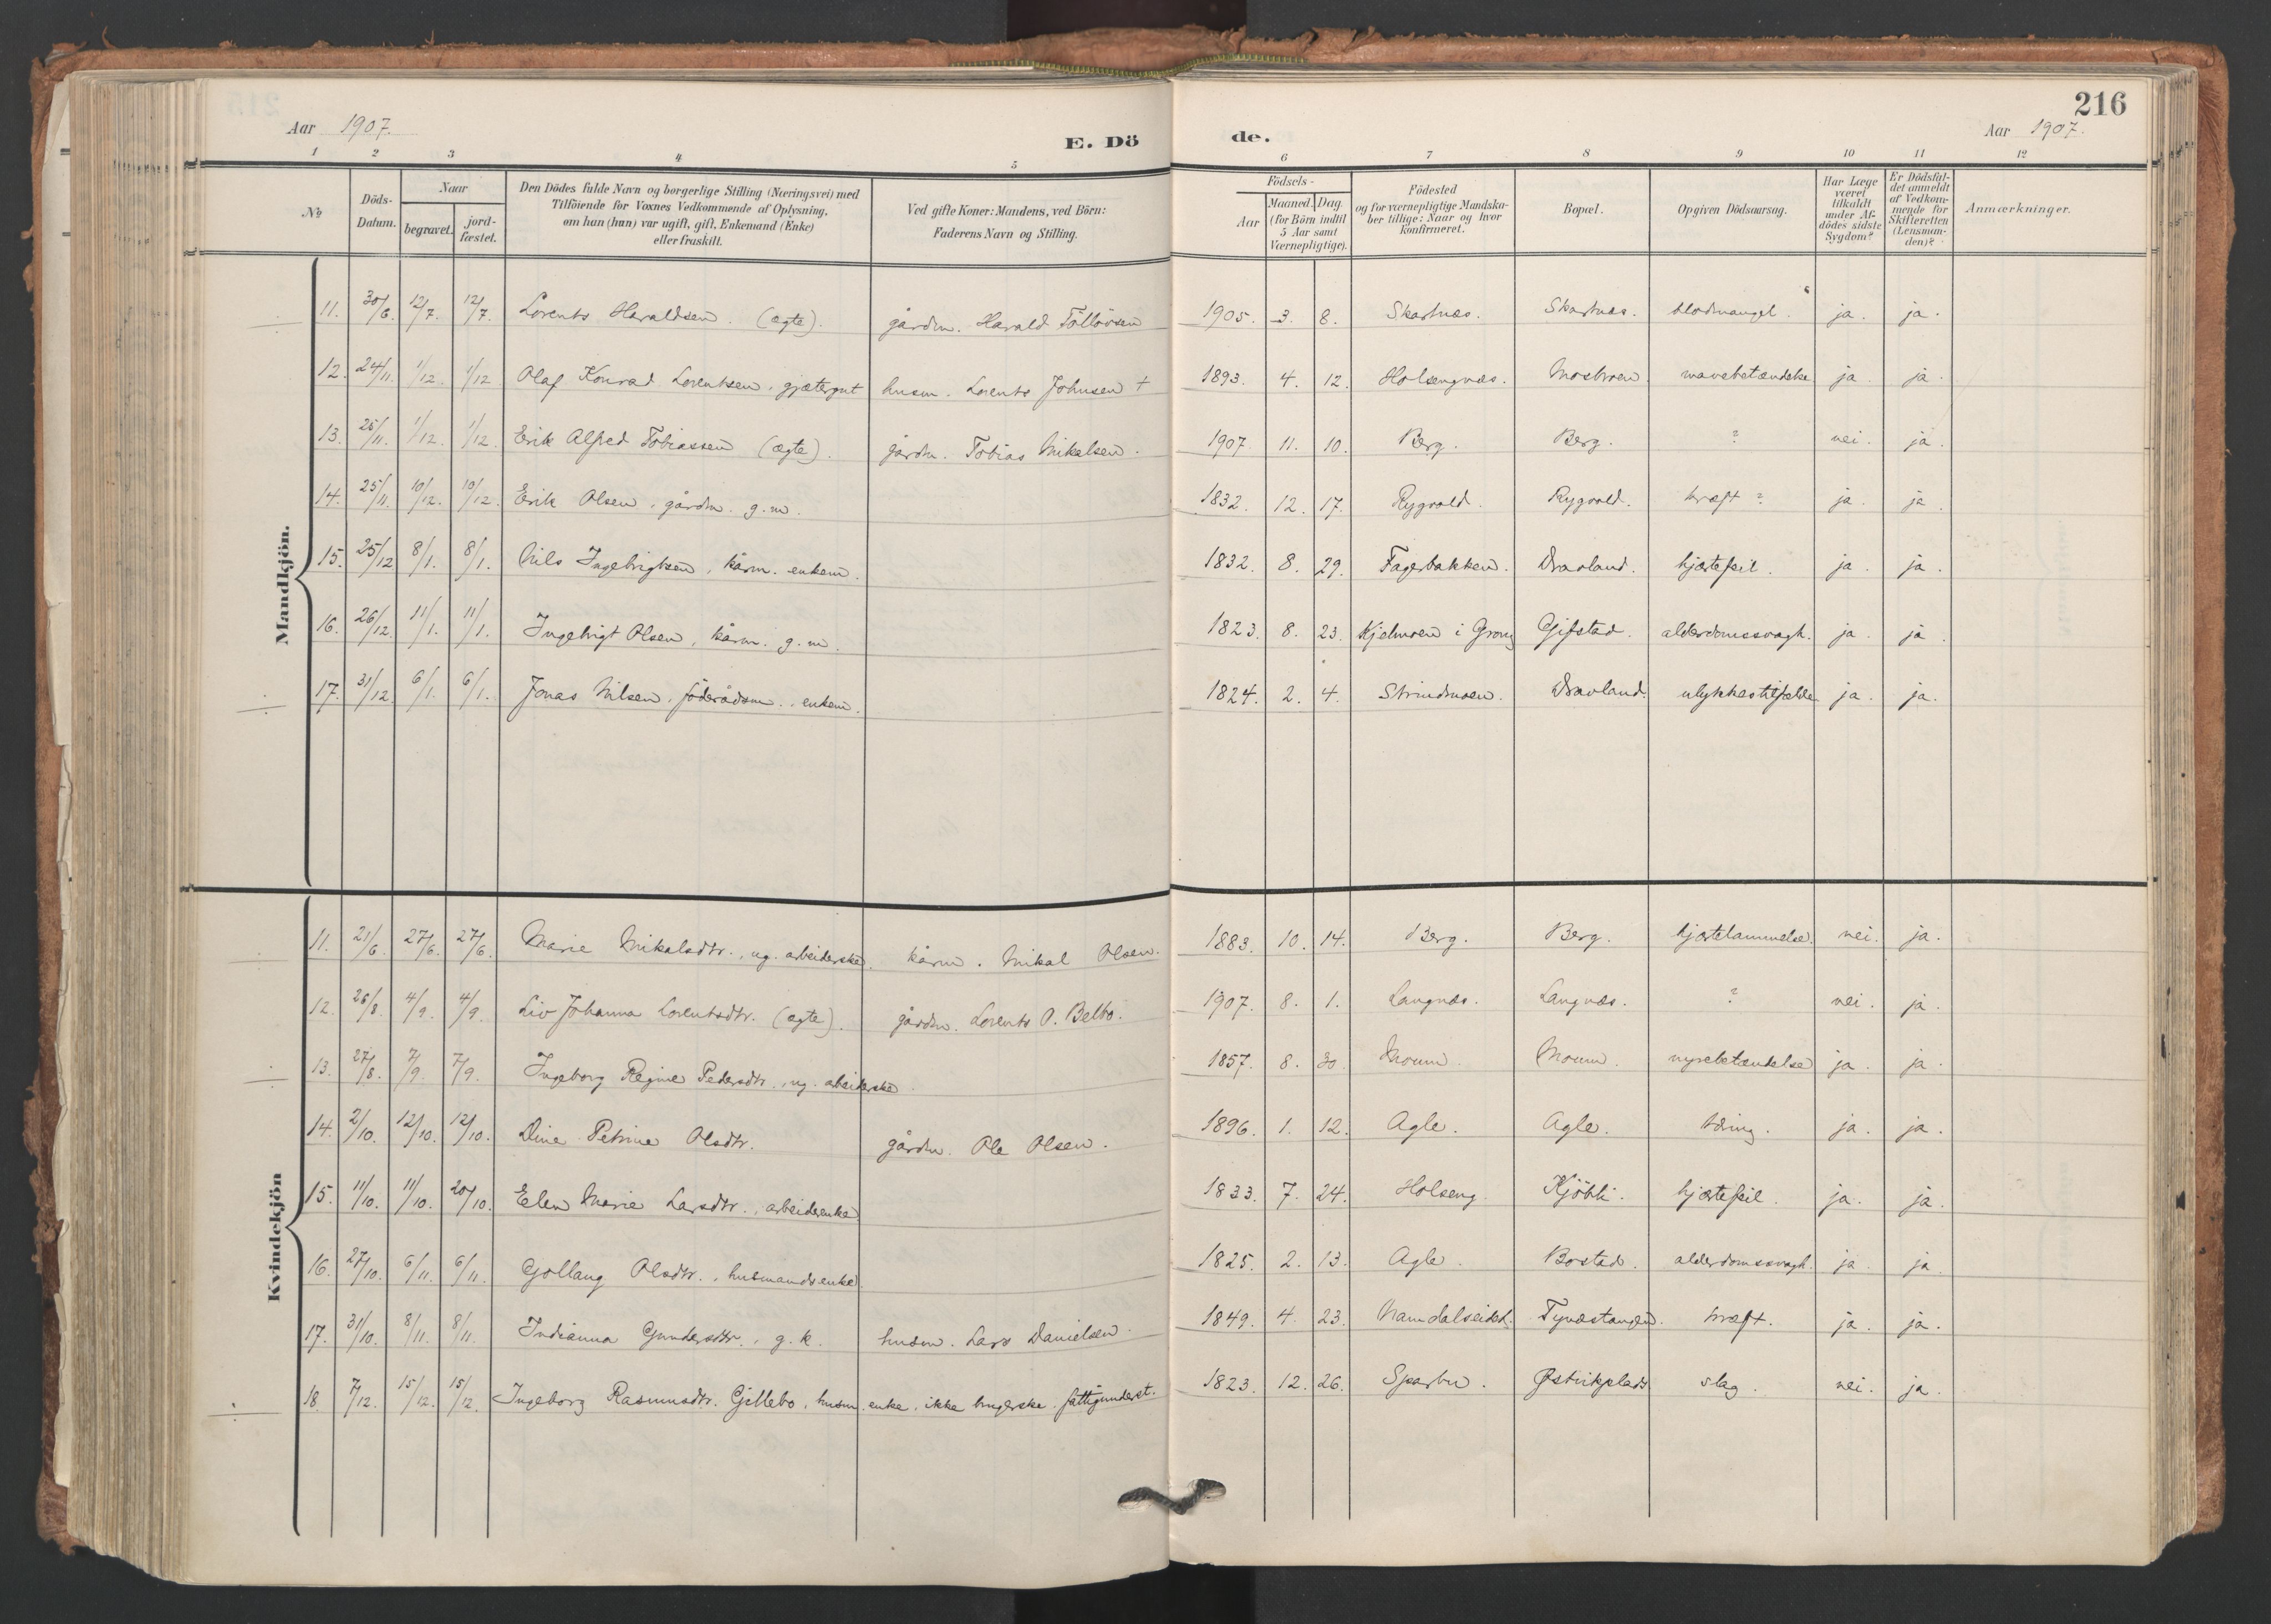 216
Aar 1907.
E. Dö de.
Aar 1907.
1 2 3 4 5 6 7 8 9 10 11 12
№
Döds-Datum.
Naar
begravet.
jord-fæstet.
Den Dödes fulde Navn og borgerlige Stilling (Næringsvei) med
Tilföiende for Voxnes Vedkommende af Oplysning,
om han (hun) var ugift, gift, Enkemand (Enke)
eller fraskilt.
Ved gifte Koner: Mandens, ved Börn:
Faderens Navn og Stilling.
Födsels-
Aar
Maaned. Dag.
(for Börn indtil
5 Aar samt
Værnepligtige).
Födested
og for værnepligtige Mandska-
ber tillige: Naar og hvor
konfirmeret.
Bopæl.
Opgiven Dödsaarsag.
Har Læge
været
tilkaldt
under Af-
dödes sidste
Sygdom?
Er Dödsfal-
det anmeldt
af Vedkom-
mende for
Skifteretten
(Lensman-
den)?
Anmærkninger.
Mandkjön.
11. 30/6 12/7. 12/7. Lorents Haraldsen. (ægte). gårdm. Harald Tollövsen 1905. 3. 8. Skartnes. Skartnes. blodmangel. ja. ja.
12. 24/11. 1/12 1/12 Olaf Konrad Lorentsen, gjætergut husm. Lorents Johnsen † 1893. 4. 12. Holsengnæs. Mosbroen mavebetændelse ja. ja.
13. 25/11. 1/12. 1/12. Erik Alfred Tobiassen (ægte). gårdm. Tobias Mikalsen. 1907. 11. 10. Berg. Berg. ? nei. ja.
14. 25/11. 10/12. 10/12. Erik Olsen, gårdm. g.m. 1832. 12. 17. Rygvold. Rygvold. kræft? ja. ja.
15. 25/12 8/1. 8/1. Nils Ingebrigtsen, kårm. enkem. 1832. 8. 29. Fagerbakken. Dravland. hjertefeil. ja. ja.
16. 26/12. 11/1. 11/1. Ingebrigt Olsen, kårm. g.m. 1823. 8. 23. Kjelmoen i Grong Gifstad. alderdomssvagh. ja. ja.
17. 31/12. 6/1. 6/1. Jonas Nilsen, föderådsm., enkem. 1824. 2. 4. Strindmoen. Dravland. ulykkestilfælde ja. ja.
Kvindekjön
11. 21/6. 27/6. 27/6. Marie Mikalsdtr., ug. arbeiderske. kårm. Mikal Olsen. 1883. 10. 14. Berg. Berg. hjertelammelse. nei. ja.
12. 26/8. 4/9. 4/9. Liv Johanna Lorentsdtr. (ægte). gårdm. Lorents P. Belbo. 1907. 8. 1. Langnæs. Langnæs. ? nei. ja.
13. 27/8. 7/9. 7/9. Ingeborg Regine Pedersdtr., ug. arbeiderske. 1857. 8. 30. Moum. Moum. nyrebetændelse ja. ja.
14. 2/10. 12/10. 12/10. Dina Petrine Olsdtr. gårdm. Ole Olsen. 1896. 1. 12. Agle. Agle. tæring. ja. ja.
15. 11/10. 11/10. 20/10. Elen Marie Larsdtr., arbeiderenke 1833. 7. 24. Holseng. hjertefeil. ja. ja.
16. 27/10. 6/11. 6/11. Gollaug Olsdtr., husmandsenke 1825. 2. 13. Agle. Bostad. alderdomssvagh. ja. ja.
17. 31/10. 8/11. 8/11. Indianna Gundersdtr., g.k. husm. Lars Danielsen. 1849. 4. 23. Namdalseidet. kræft. ja. ja.
18. 7/12. 15/12. 15/12. Ingeborg Rasmusdtr. Gillebo, husm. enke, ikke brugerske. fattigunderst. 1823. 12. 26. Sparbu. Østvikplads slag. nei. ja.